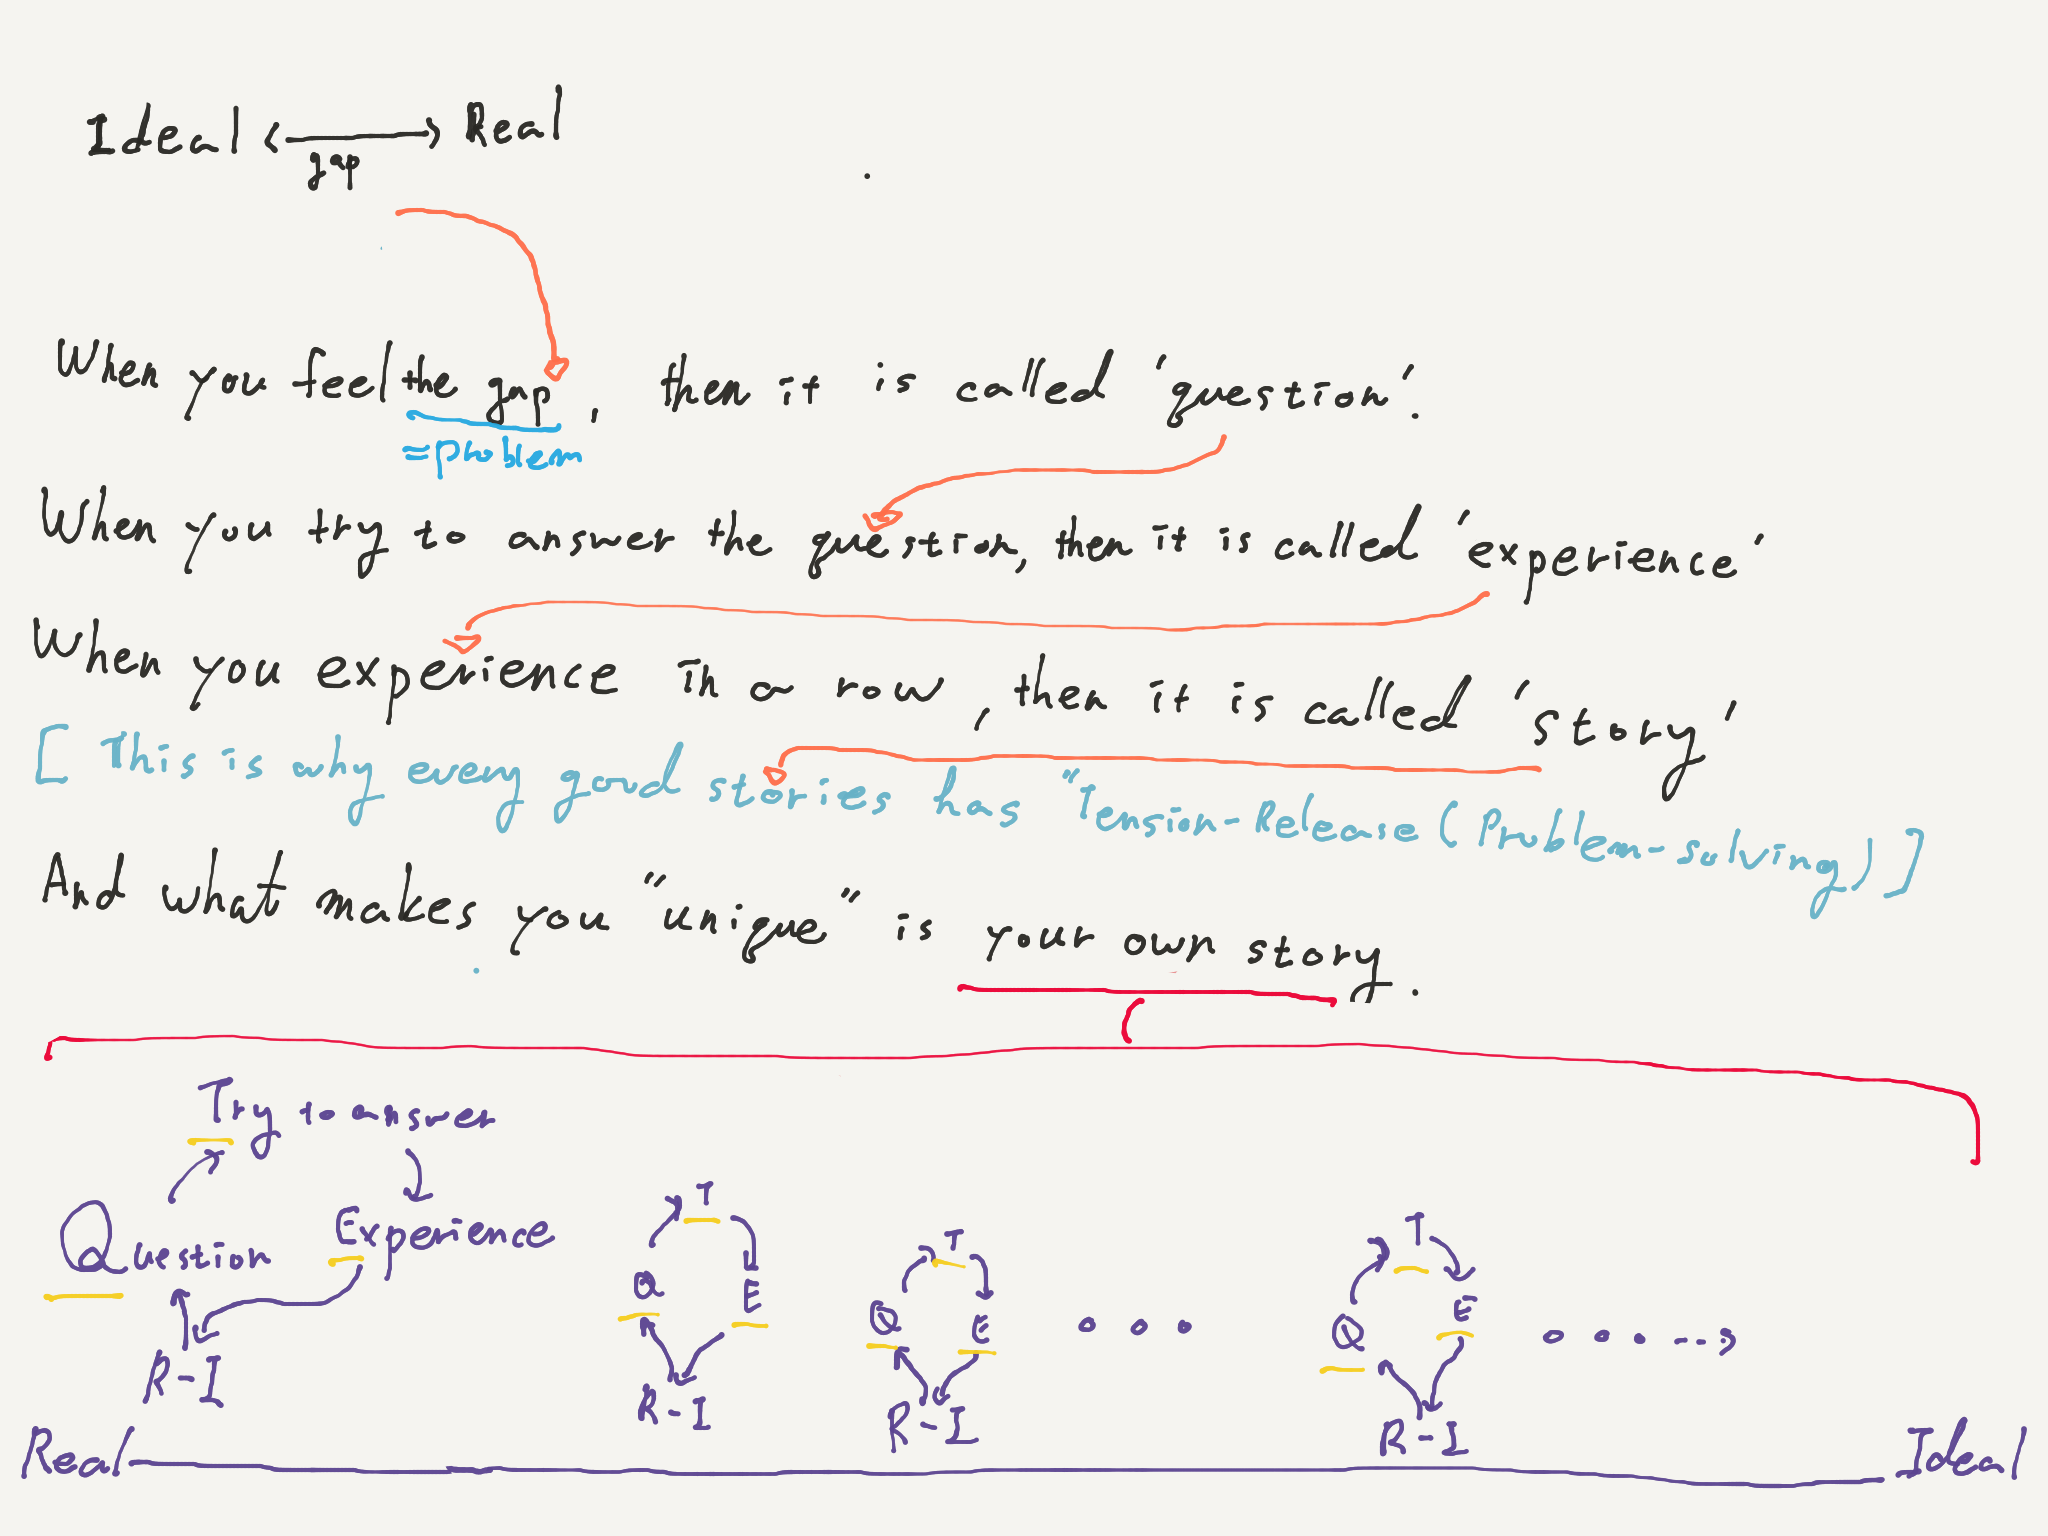 Ideal <-> Real
gap
When you feel the gap, then it is called 'question'.
=problem
When you try to answer the question, then it is called 'experience'
When you experience in a row, then it is called 'story'
[ This is why every good stories has "Tension-Release (Problem-solving) ]
And what makes you "unique" is your own story.
Try to answer
Question
Experience
R-I
T
Q E
R-I
T
Q E
R-I
T
Q E
R-I
Real
Ideal